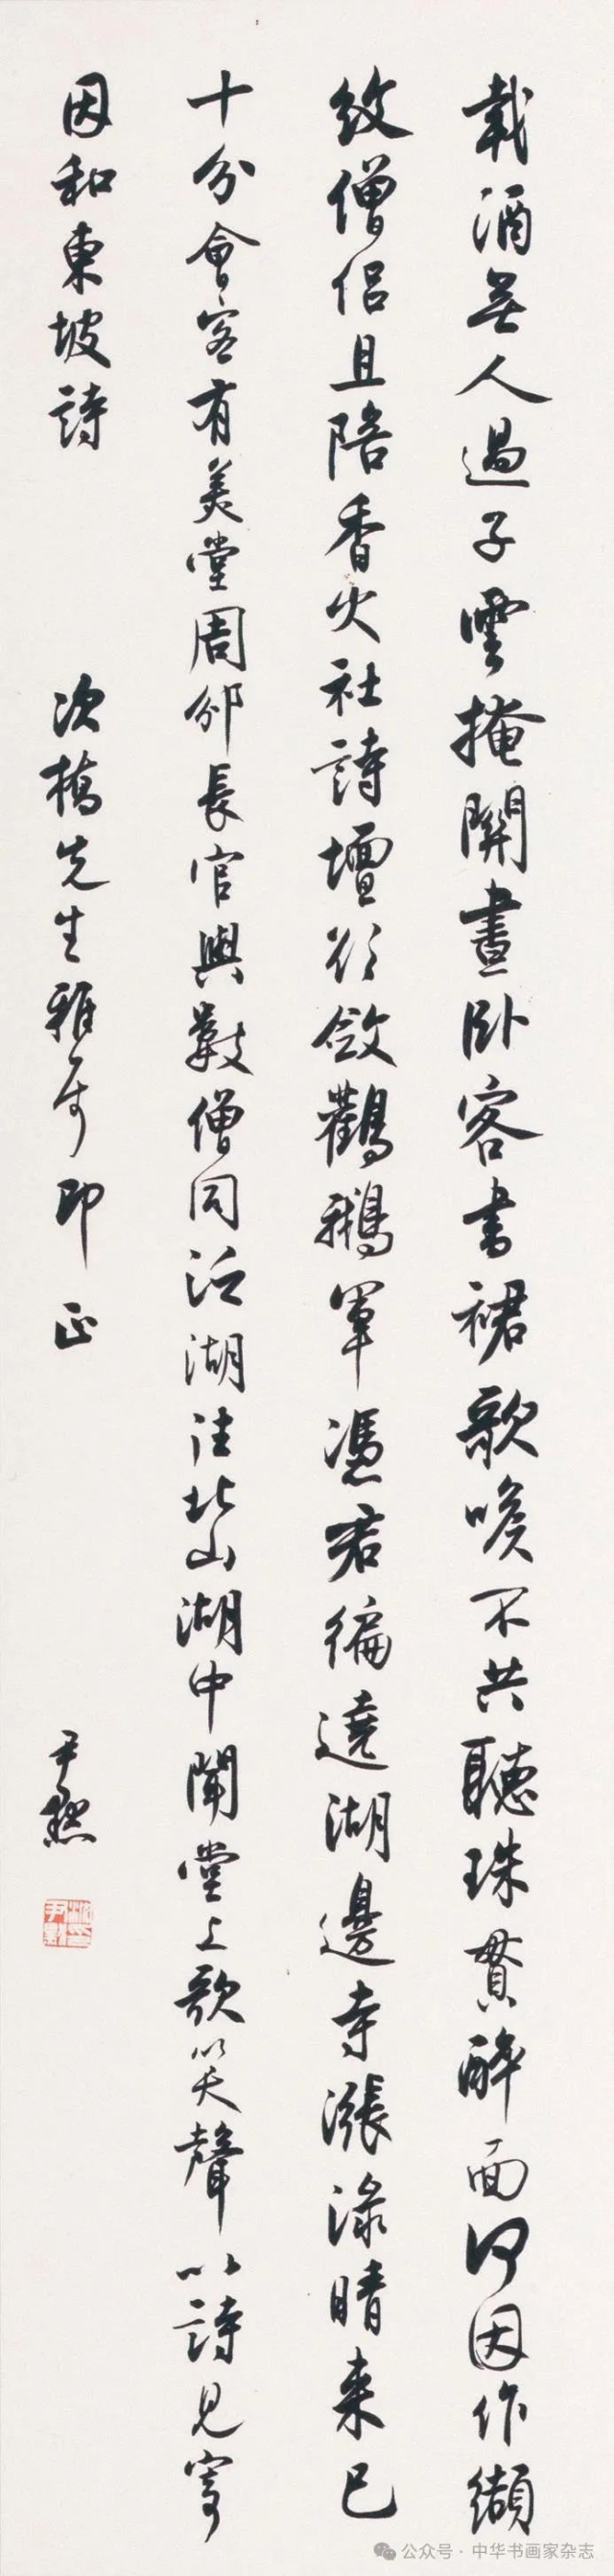 載酒無人過子雲掩關晝臥客書裙歌喉不共聽珠貫醉面何因作纈
紋僧侶且陪香火社詩壇欲斂鸛鵝軍憑君徧遶湖邊寺漲淥晴來已
十分會客有美堂周邠長官與數僧同泛湖往北山湖中聞堂上歌笑聲以詩見寄
因和東坡詩
次橋先生雅屬即正
尹默
公众号·中华书画家杂志